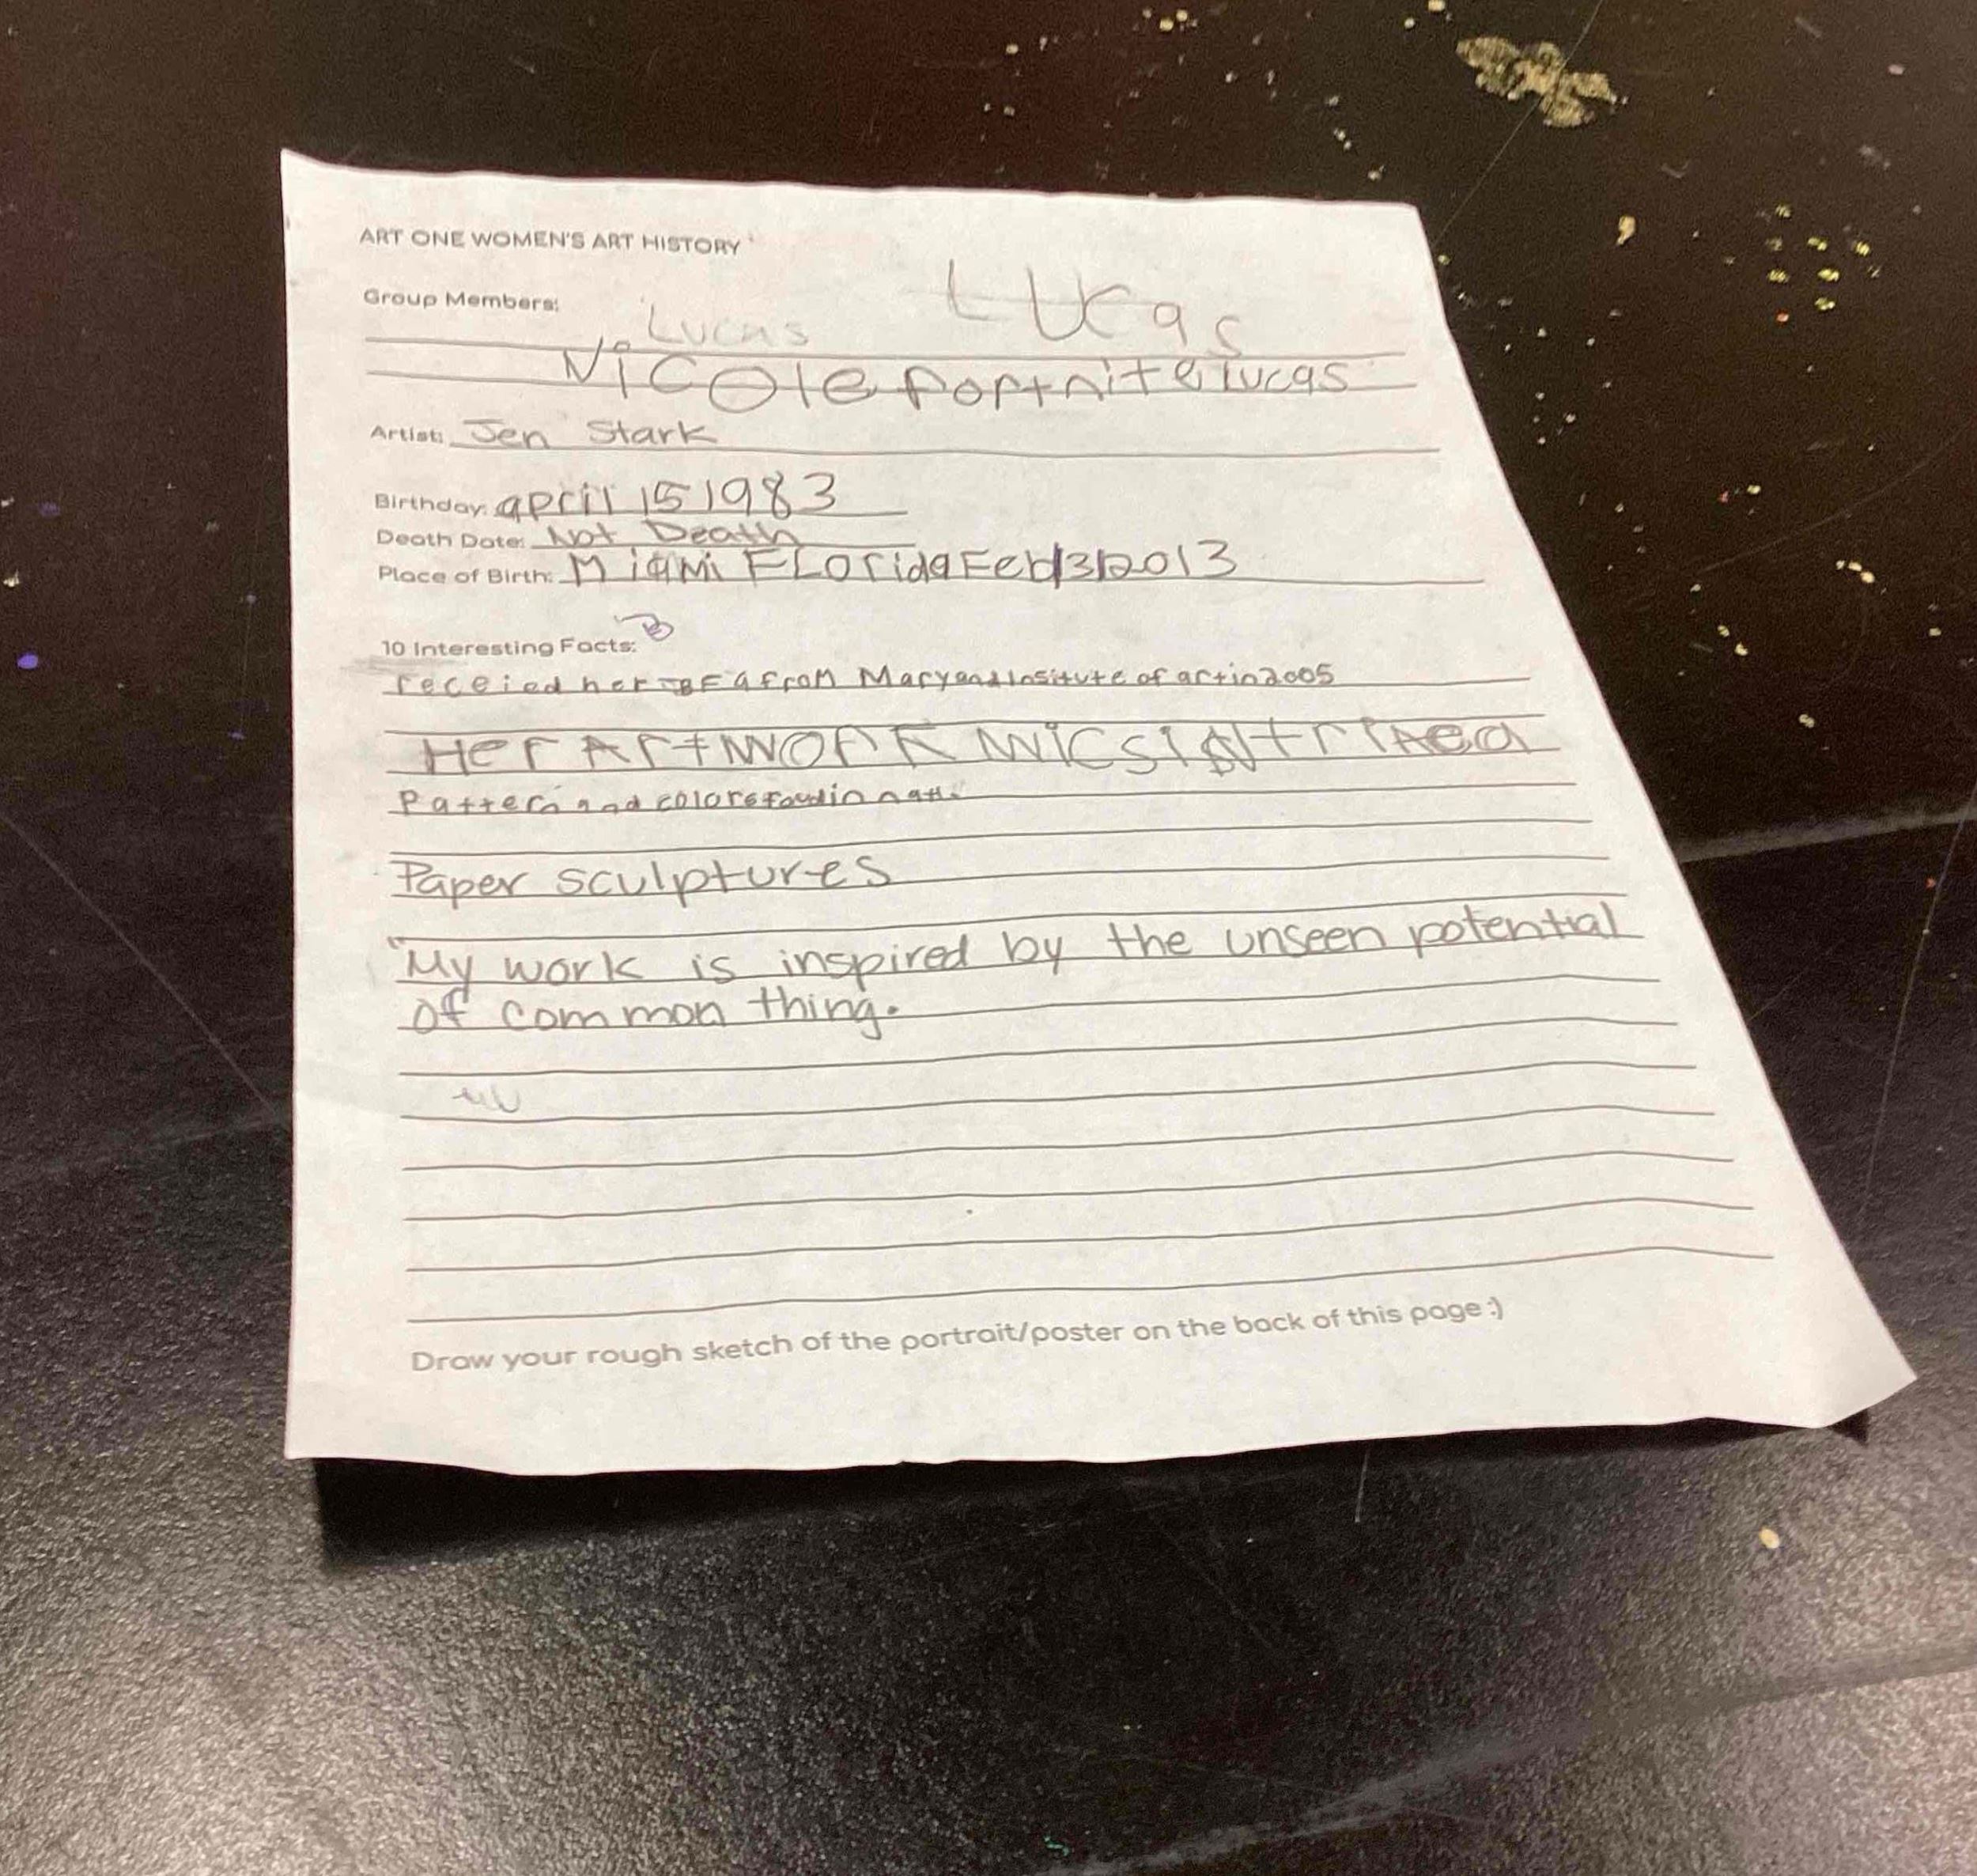 ART ONE WOMEN'S ART HISTORY
Group Members:
Lucas LUcas
NiCOle fortnite lucas
Artist: Jen Stark
Birthday: april 15 1983
Death Date: Not Death
Place of Birth: Miami FLorida Feb 13 2013
10 Interesting Facts:
receied her BFA from Maryand Insitute of art in 2005
Her ArtWork
Pattern and colors in
Paper sculptures
"My work is inspired by the unseen potential
of common thing.
Draw your rough sketch of the portrait/poster on the back of this page :)